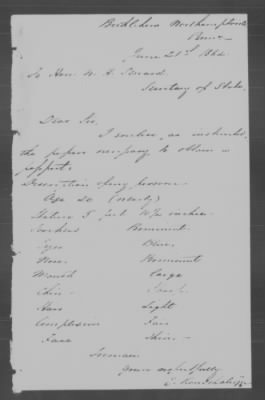 Bethlehem Northampton Co
Penna
June 21st 186
To Hon. W. H. Seward
Secretary of State.
Dear Sir.
I enclose, as instructed,
the papers necessary to obtain a
passport.
Description of my person.
Age 20 (nearly)
Stature 5 feet 10½ inches
Forehead Prominent
Eyes Blue.
Nose. Prominent
Mouth Large
Chin
Hair Light
Complexion Fair
Face Thin.
Yours respectfully
E.